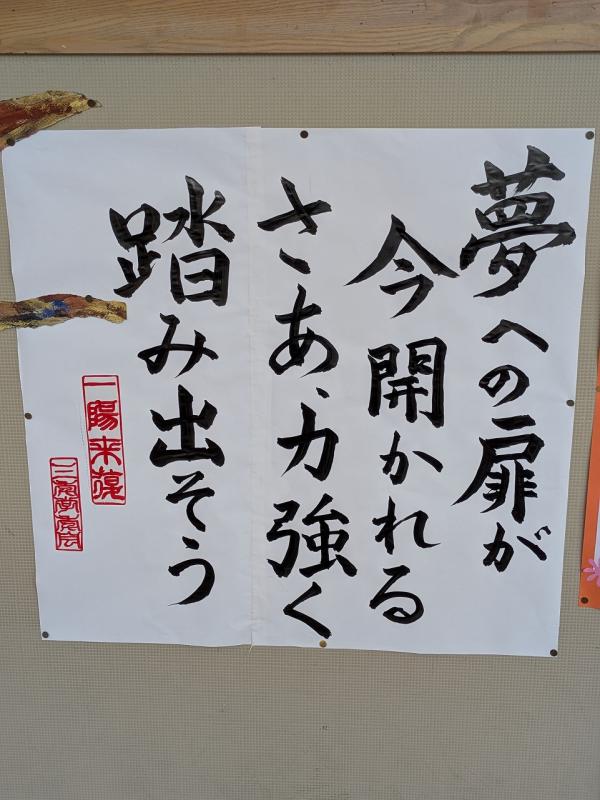 夢への扉が
今開かれる
さあ、力強く
踏み出そう
一陽来復